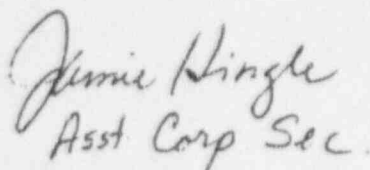 Jamie Hingle
Asst Corp Sec.